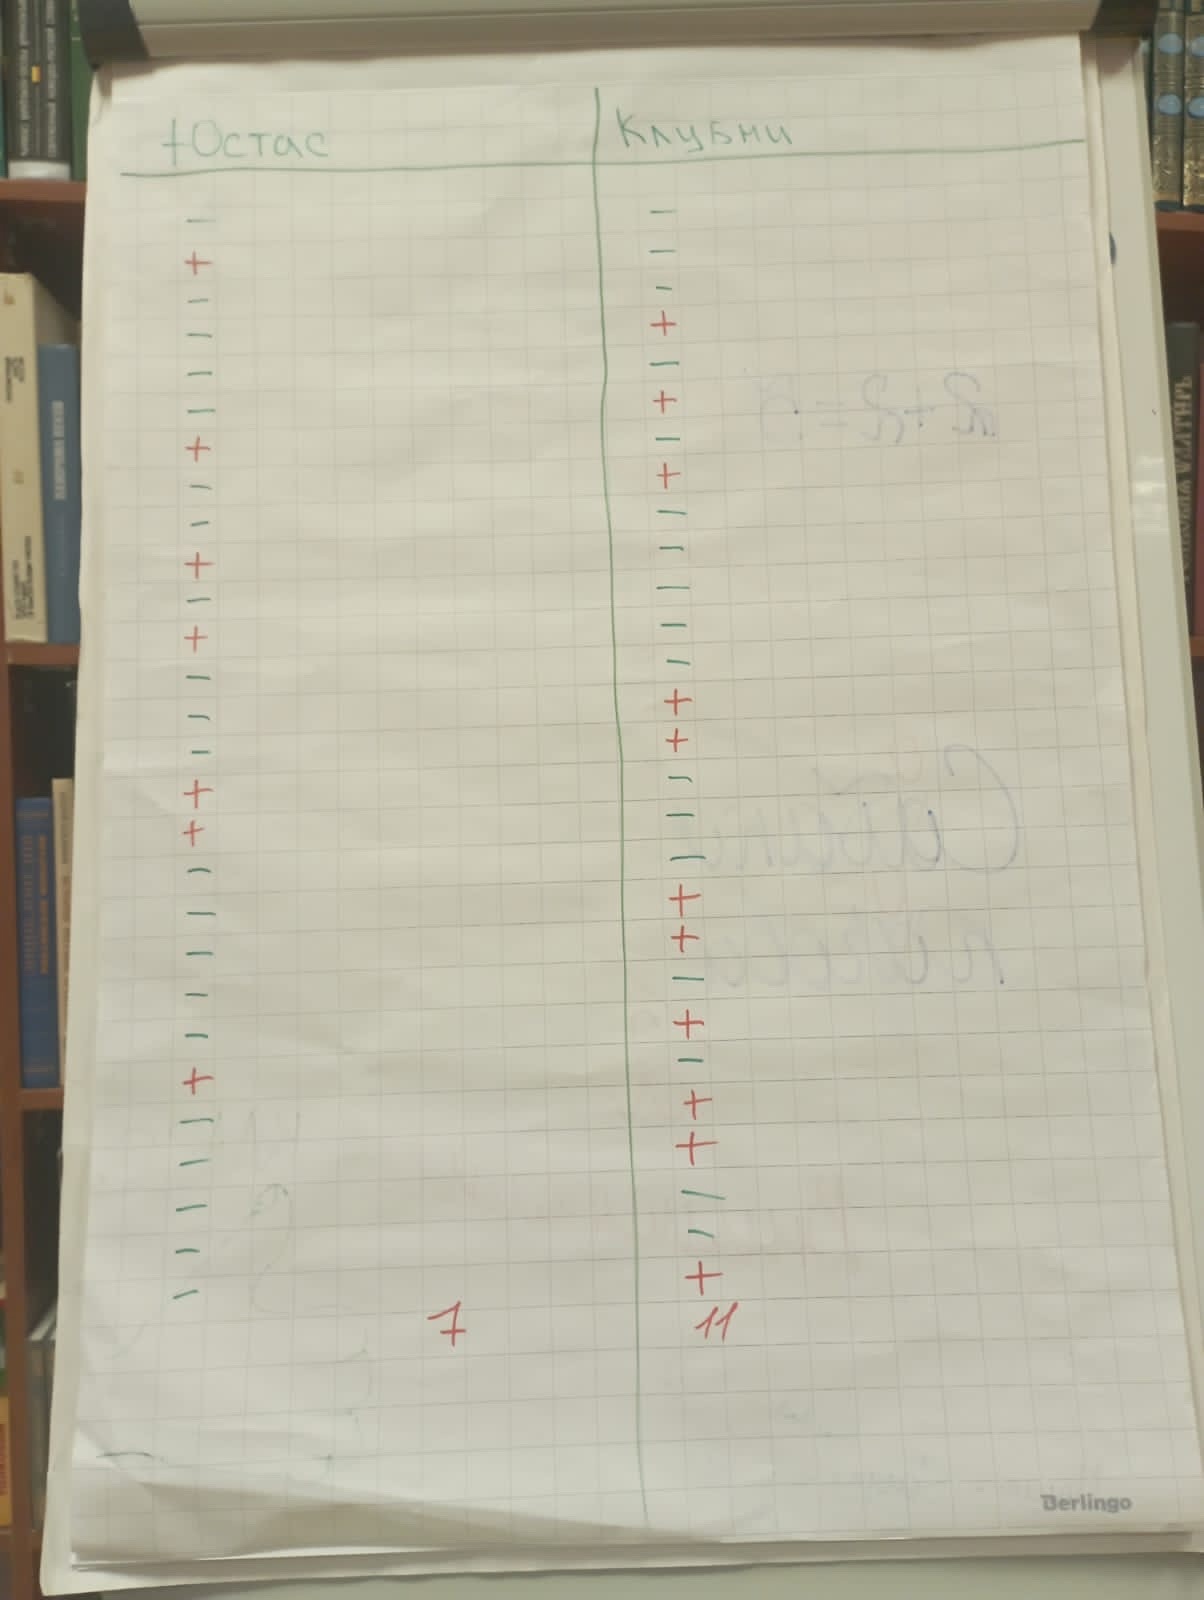 Юстас
-
+
-
-
-
-
+
-
-
+
-
+
-
-
-
+
+
-
-
-
-
-
+
-
-
-
-
-
7
Клубни
-
-
-
+
-
+
-
+
-
-
-
-
-
+
+
-
-
-
+
+
-
+
-
+
+
-
-
+
11
Berlingo